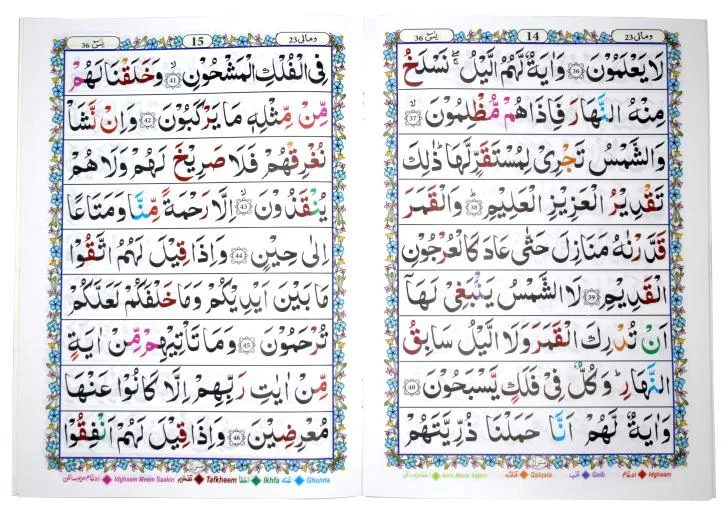 وماالى 23
14
يٰسٓ 36
لَا يَعْلَمُوْنَ ﴿36﴾ وَاٰيَةٌ لَّهُمُ الَّيْلُ ۚۖ نَسْلَخُ
مِنْهُ النَّهَارَ فَاِذَا هُمْ مُّظْلِمُوْنَ ۙ﴿37﴾
وَالشَّمْسُ تَجْرِىْ لِمُسْتَقَرٍّ لَّهَا ذٰلِكَ
تَقْدِيْرُ الْعَزِيْزِ الْعَلِيْمِ ؕ﴿38﴾ وَالْقَمَرَ
قَدَّرْنٰهُ مَنَازِلَ حَتّٰى عَادَ كَالْعُرْجُوْنِ
الْقَدِيْمِ ﴿39﴾ لَا الشَّمْسُ يَنْۢبَغِىْ لَهَاۤ
اَنْ تُدْرِكَ الْقَمَرَ وَلَا الَّيْلُ سَابِقُ
النَّهَارِ ؕ وَكُلٌّ فِىْ فَلَكٍ يَّسْبَحُوْنَ ﴿40﴾
وَاٰيَةٌ لَّهُمْ اَنَّا حَمَلْنَا ذُرِّيَّتَهُمْ
منزل
Ikhfa Meem Saakin قلقله Qalqala قلب Qalb ادغام Idghaam
وماالى 23
15
يٰسٓ 36
فِى الْفُلْكِ الْمَشْحُوْنِ ۙ﴿41﴾ وَخَلَقْنَا لَهُمْ
مِّنْ مِّثْلِهٖ مَا يَرْكَبُوْنَ ﴿42﴾ وَاِنْ نَّشَاْ
نُغْرِقْهُمْ فَلَا صَرِيْخَ لَهُمْ وَلَا هُمْ
يُنْقَذُوْنَ ۙ﴿43﴾ اِلَّا رَحْمَةً مِّنَّا وَمَتَاعًا
اِلٰى حِيْنٍ ﴿44﴾ وَاِذَا قِيْلَ لَهُمُ اتَّقُوْا
مَا بَيْنَ اَيْدِيْكُمْ وَمَا خَلْفَكُمْ لَعَلَّكُمْ
تُرْحَمُوْنَ ﴿45﴾ وَمَا تَاْتِيْهِمْ مِّنْ اٰيَةٍ
مِّنْ اٰيٰتِ رَبِّهِمْ اِلَّا كَانُوْا عَنْهَا
مُعْرِضِيْنَ ﴿46﴾ وَاِذَا قِيْلَ لَهُمْ اَنْفِقُوْا
منزل
ادغام میم ساکن Idghaam Meem Saakin تفخیم Tafkheem اخفا Ikhfa غنہ Ghunna